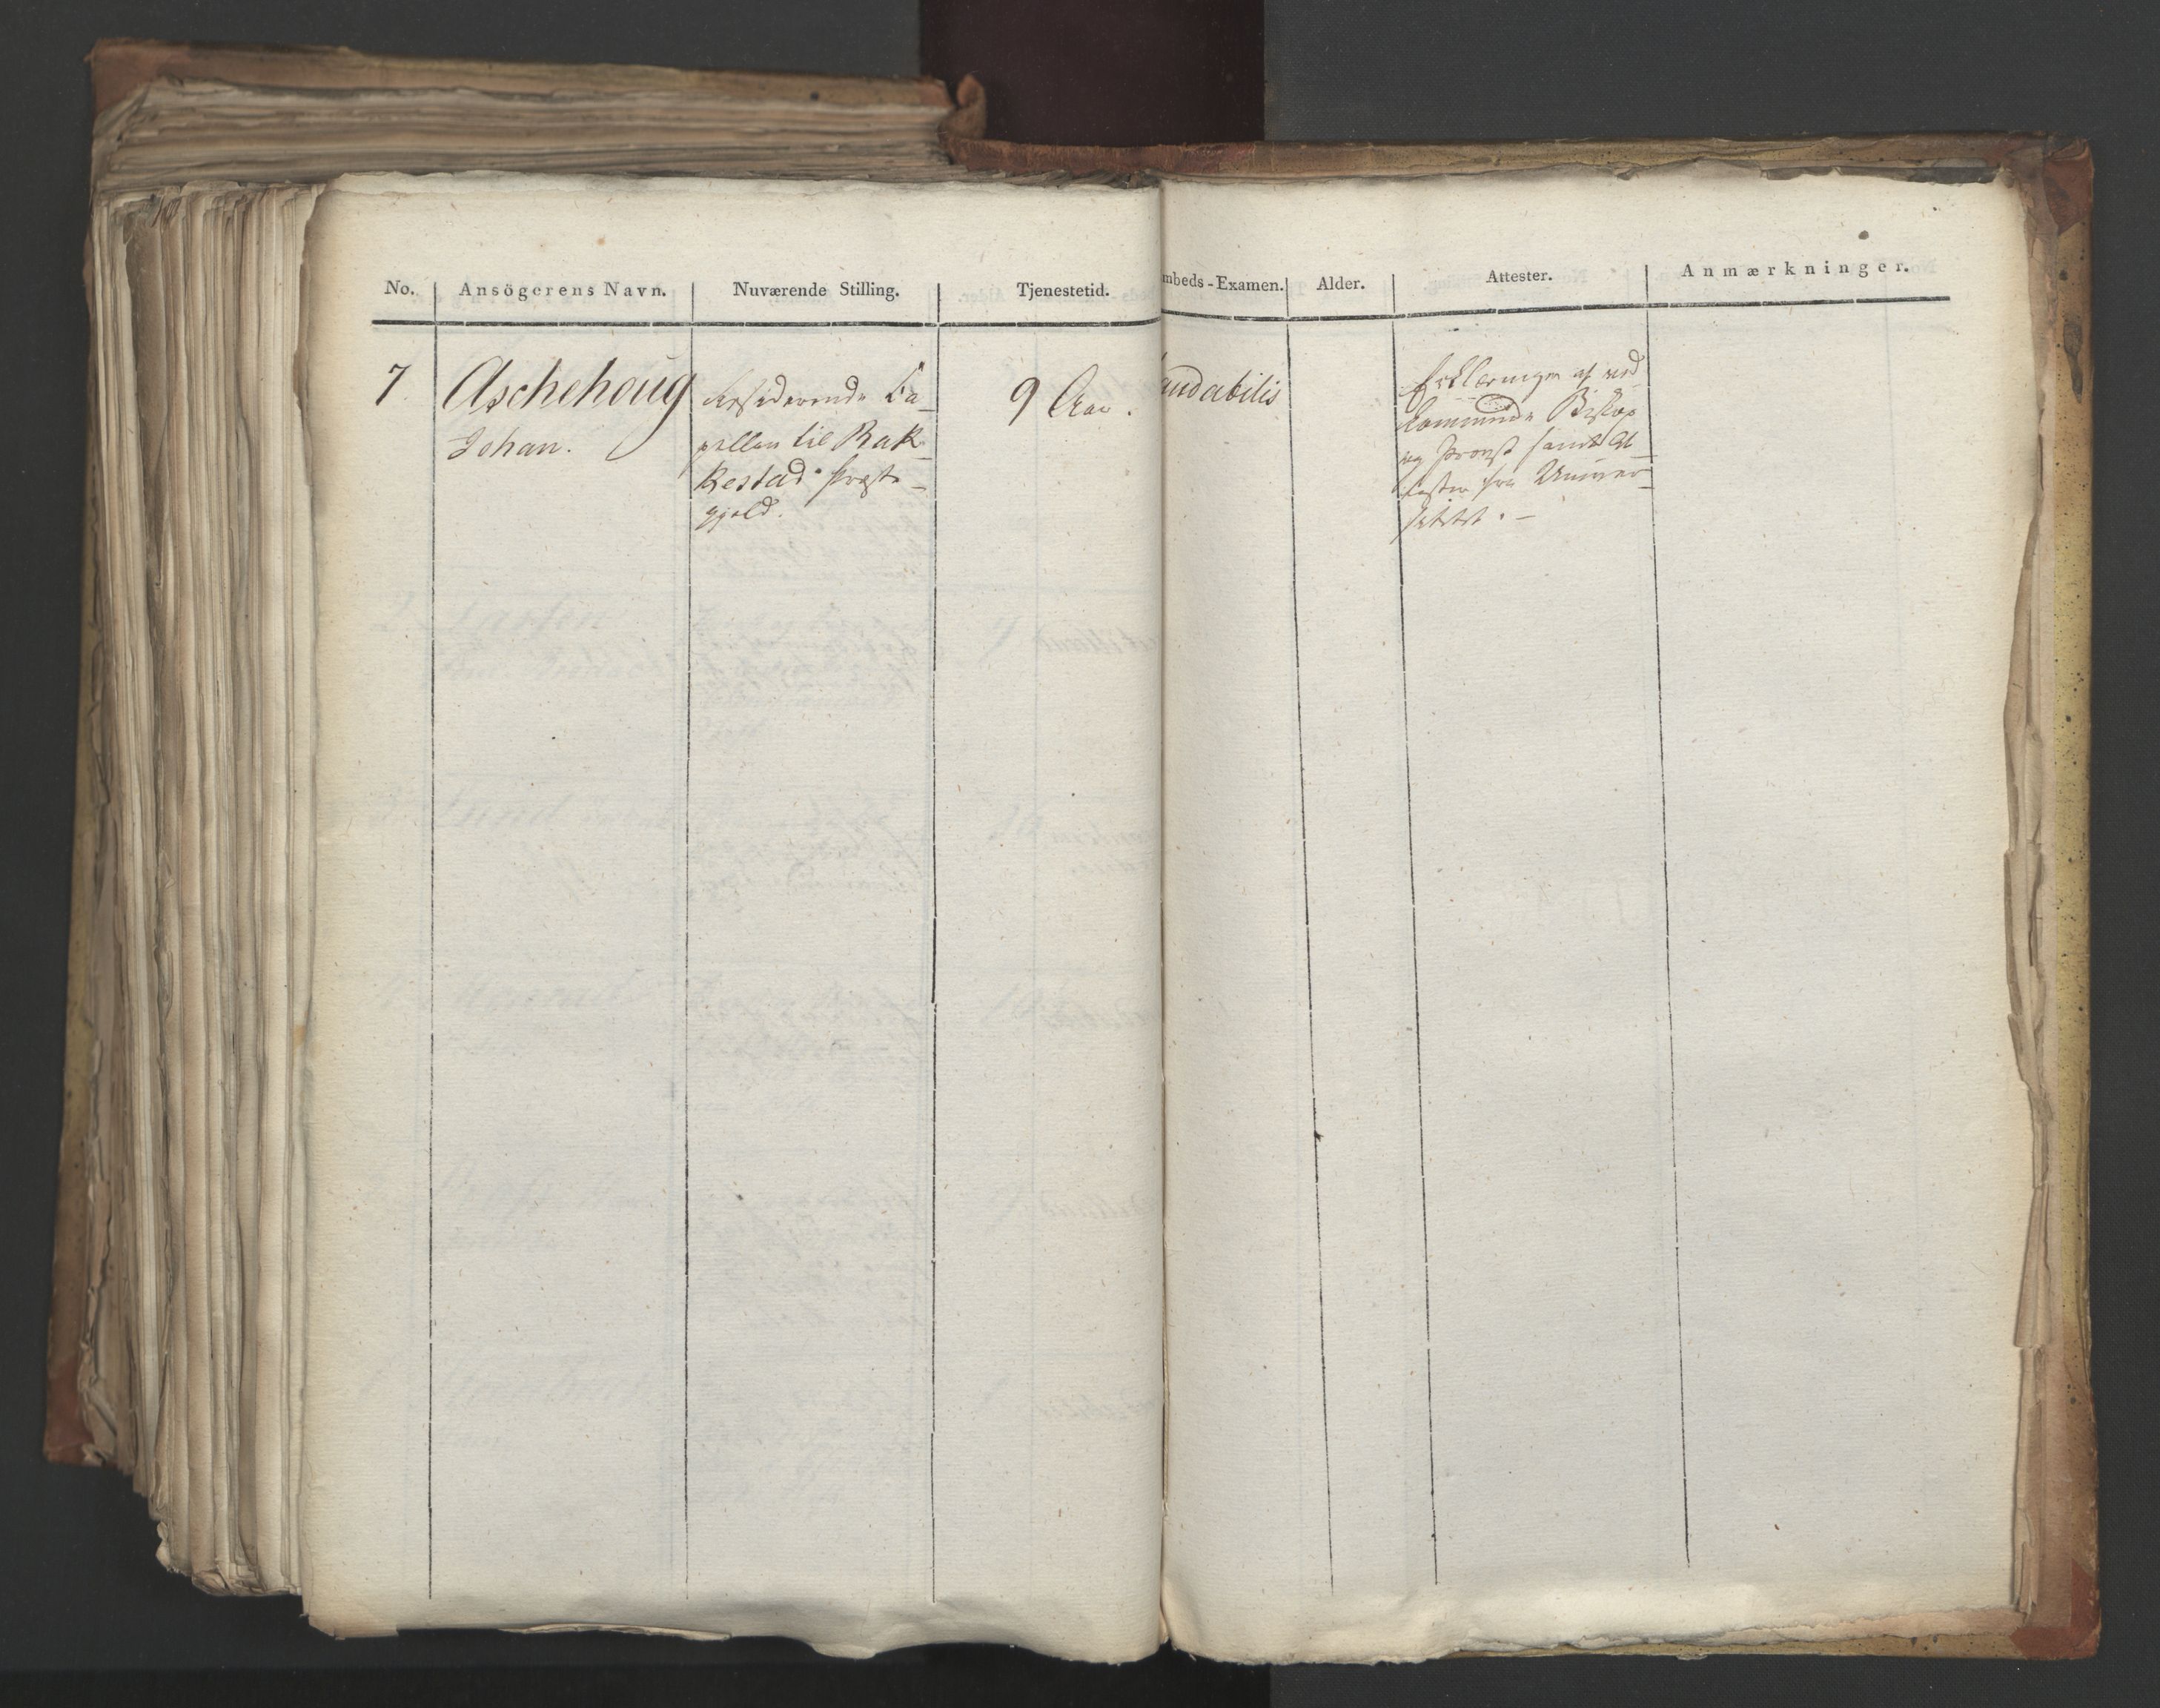 No. Ansögerens Navn. Nuværende Stilling. Tjenestetid. mbeds-Examen. Alder. Attester. Anmærkninger.
7. Aschehoug
Johan.
Residerende Ca-
pellan til Rak-
kestad Præste-
gjeld.
9 Aar.
audabilis
Erklæringer af ved-
kommende Biskop
og Provst samt At-
tester fra Univer-
sitetet. -